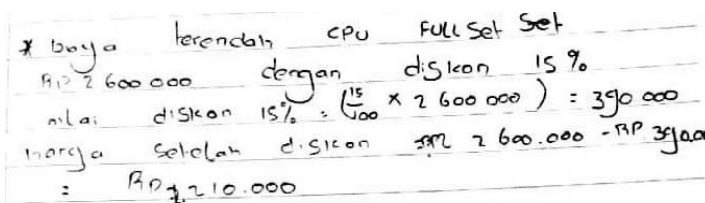 * baya terendah CPU FULL Set Set
RP 2 600 000 dengan diskon 15 %
nilai diskon 15% = (15/100 × 2 600 000) = 390 000
harga Setelah diskon 2 600.000 - RP 390.00
= RP 2.210.000